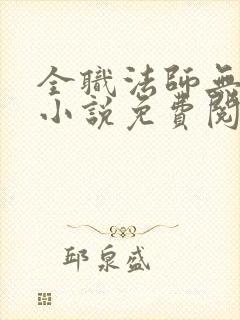 全職法師無
小說免費閱
邱泉盛